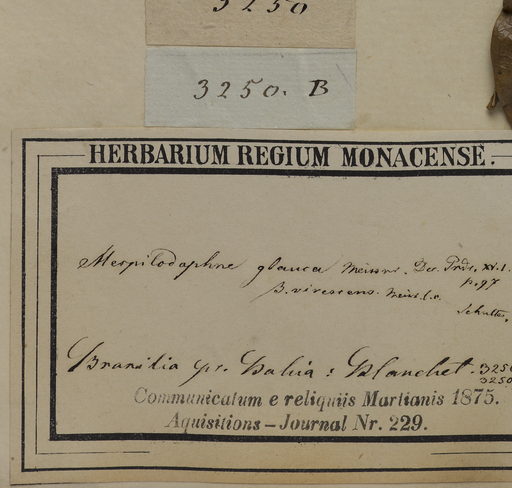 3250
3250. B
HERBARIUM REGIUM MONACENSE.
Mespilodaphne glauca Meissn. Dec. Prdr. XV.1.
p. 97
β. virescens. Meisn. l.c.
Brasilia pr. Bahia: Blanchet. 3250
3250
Communicatum e reliquiis Martianis 1875.
Aquisitions – Journal Nr. 229.